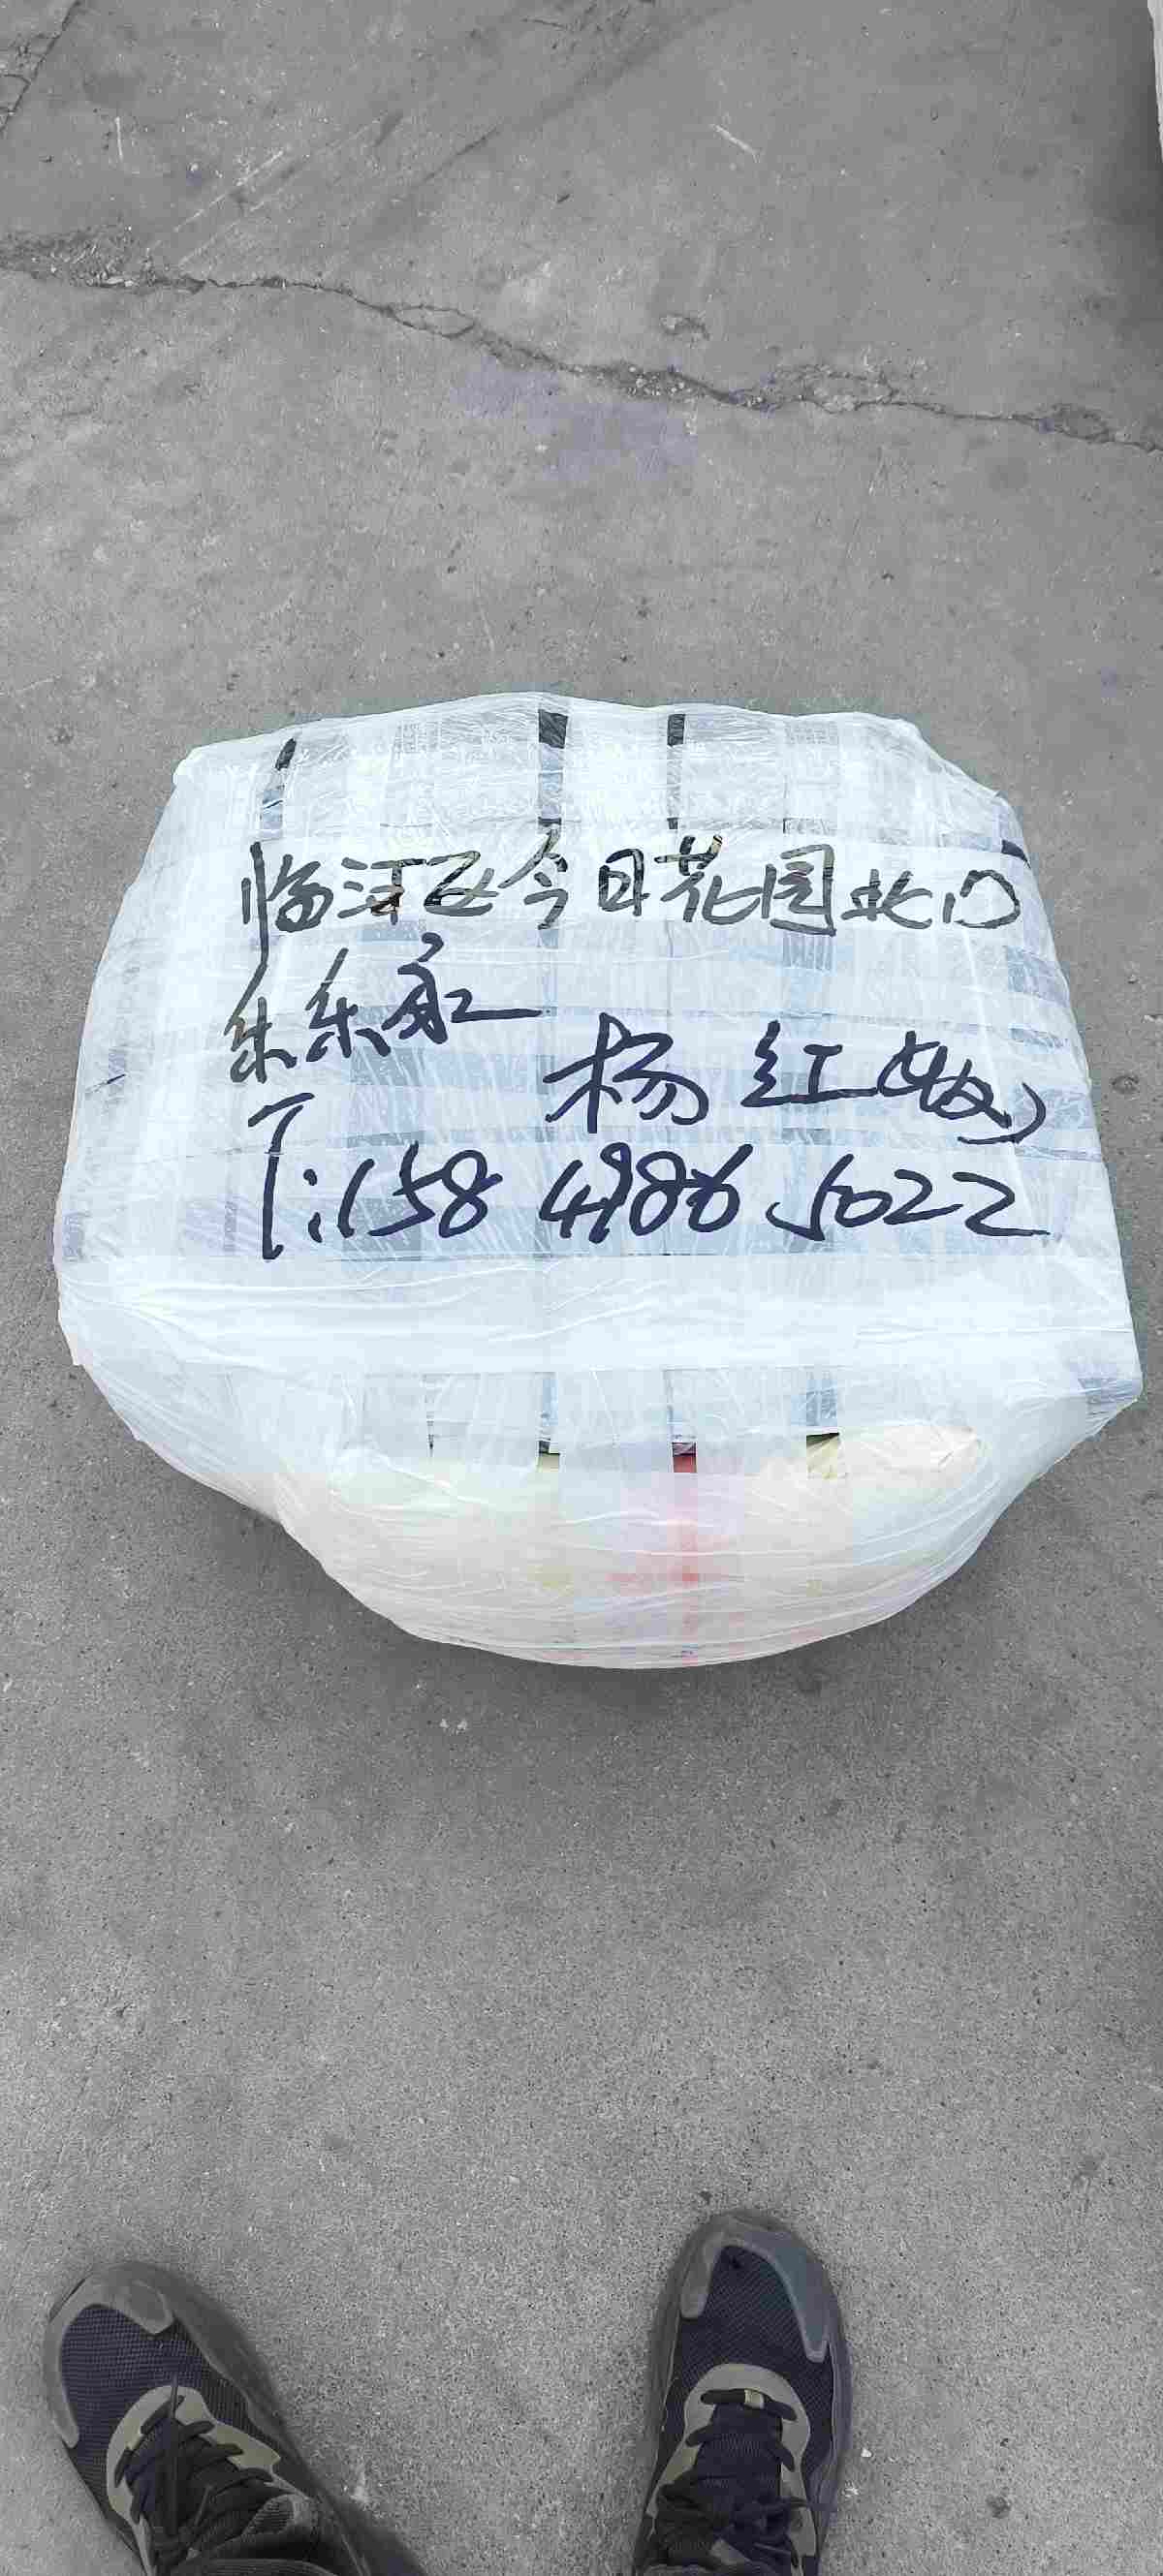 临江区今日花园北门
乐乐家
杨红(收)
T:158 4986 5022